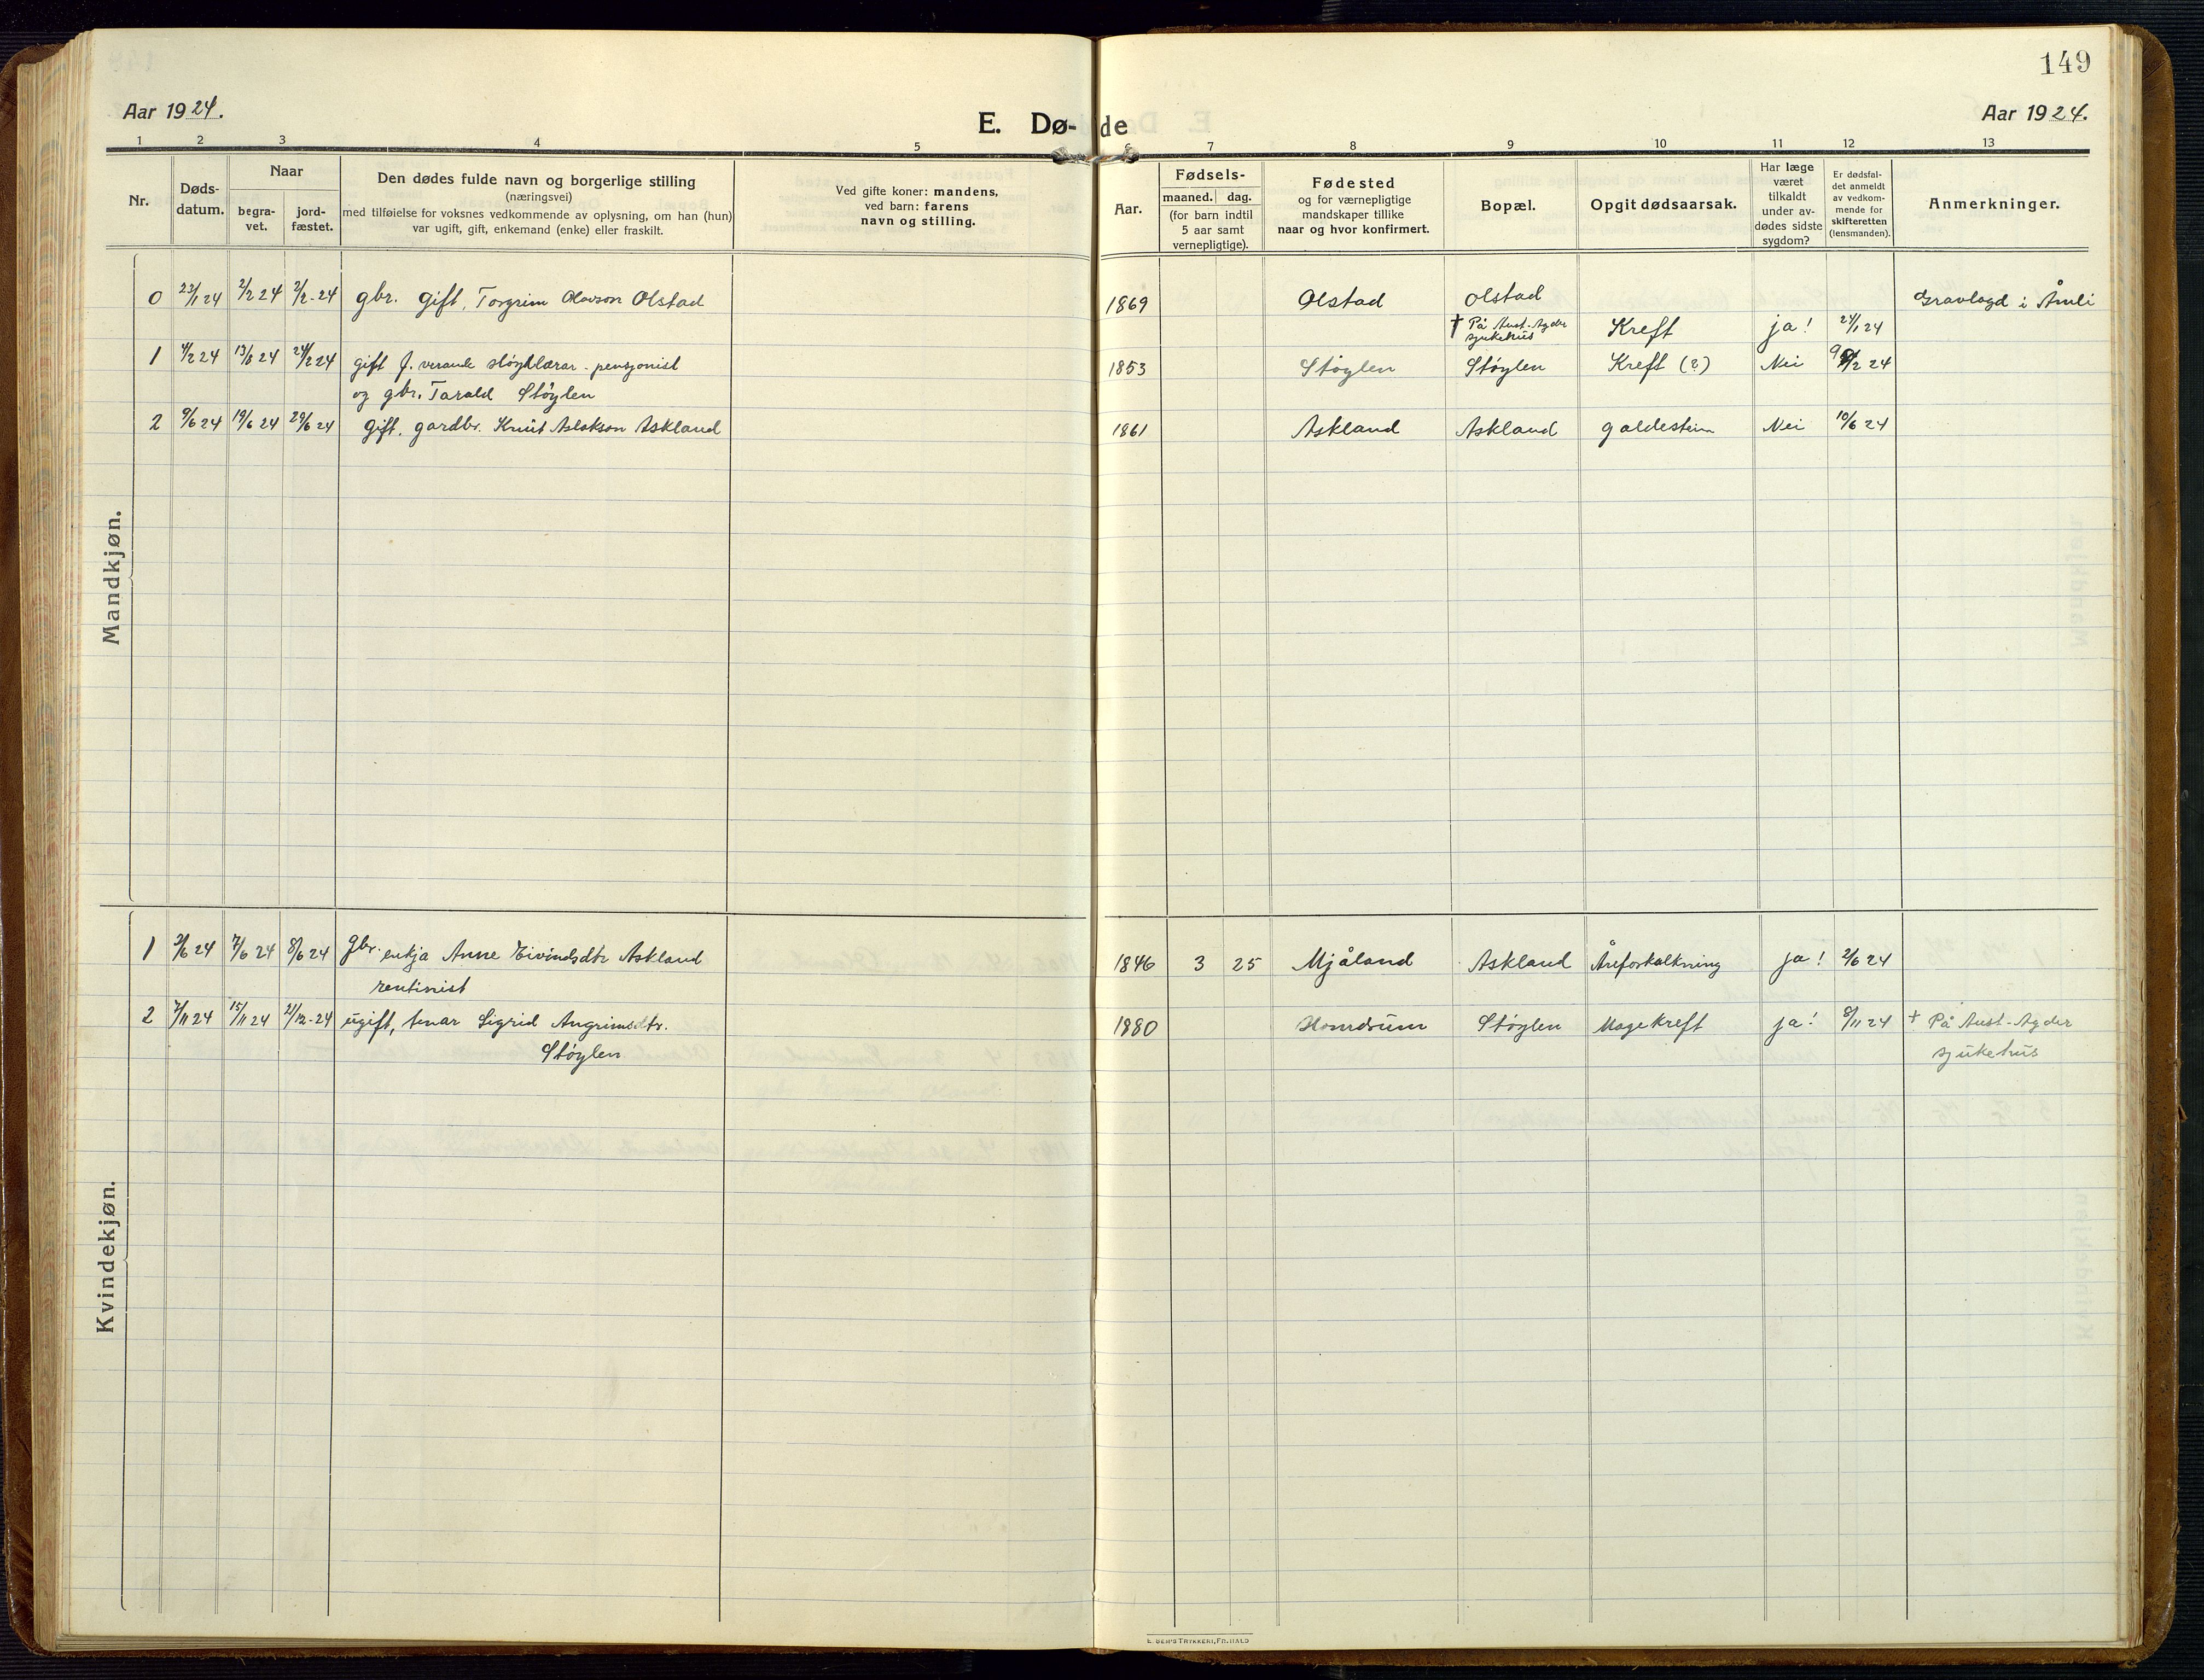 149
Aar 1924.
E. Dø-de
Aar 1924.
1 2 3 4 5 6 7 8 9 10 11 12 13
Nr.
Døds-datum.
Naar
begra-vet.
jord-fæstet.
Den dødes fulde navn og borgerlige stilling
(næringsvei)
med tilføielse for voksnes vedkommende av oplysning, om han (hun)
var ugift, gift, enkemand (enke) eller fraskilt.
Ved gifte koner: mandens,
ved barn: farens
navn og stilling.
Aar.
Fødsels-
maaned. dag.
(for barn indtil
5 aar samt
vernepligtige).
Fødested
og for værnepligtige
mandskaper tillike
naar og hvor konfirmert.
Bopæl.
Opgit dødsaarsak.
Har læge
været
tilkaldt
under av-
dødes sidste
sygdom?
Er dødsfal-
det anmeldt
av vedkom-
mende for
skifteretten
(lensmanden).
Anmerkninger.
Mandkjøn.
0 23/1 24 2/2 24 2/2-24 gbr. gift, Torgrim Olavson Olstad 1869 Olstad Olstad Gravlagd i Åmli
† På Aust-Agder Kreft ja! 24/1 24
sjukehus
1 4/2 24 13/6 24 24/2 24 gift f. verande pensjonist 1853 Støylen Støylen Kreft (?) Nei /2 24
og gbr. Tarald Støylen
2 9/6 24 19/6 24 29/6 24 gift. gardbr. Knut Aslakson Askland 1861 Askland Askland galdestein Nei 10/6 24
Kvindekjøn.
1 /6 24 7/6 24 8/6 24 gbr. enkja Anne Eivindsdtr Askland 1846 3 25 Mjåland Askland Åreforkalkning ja! 2/6 24
rentinist
2 7/11 24 15/11 24 21/12-24 ugift, tenar Sigrid Angrimsdtr. 1880 Homdrum Støylen Magekreft ja! 8/11 24 † På Aust-Agder
Støylen sjukehus